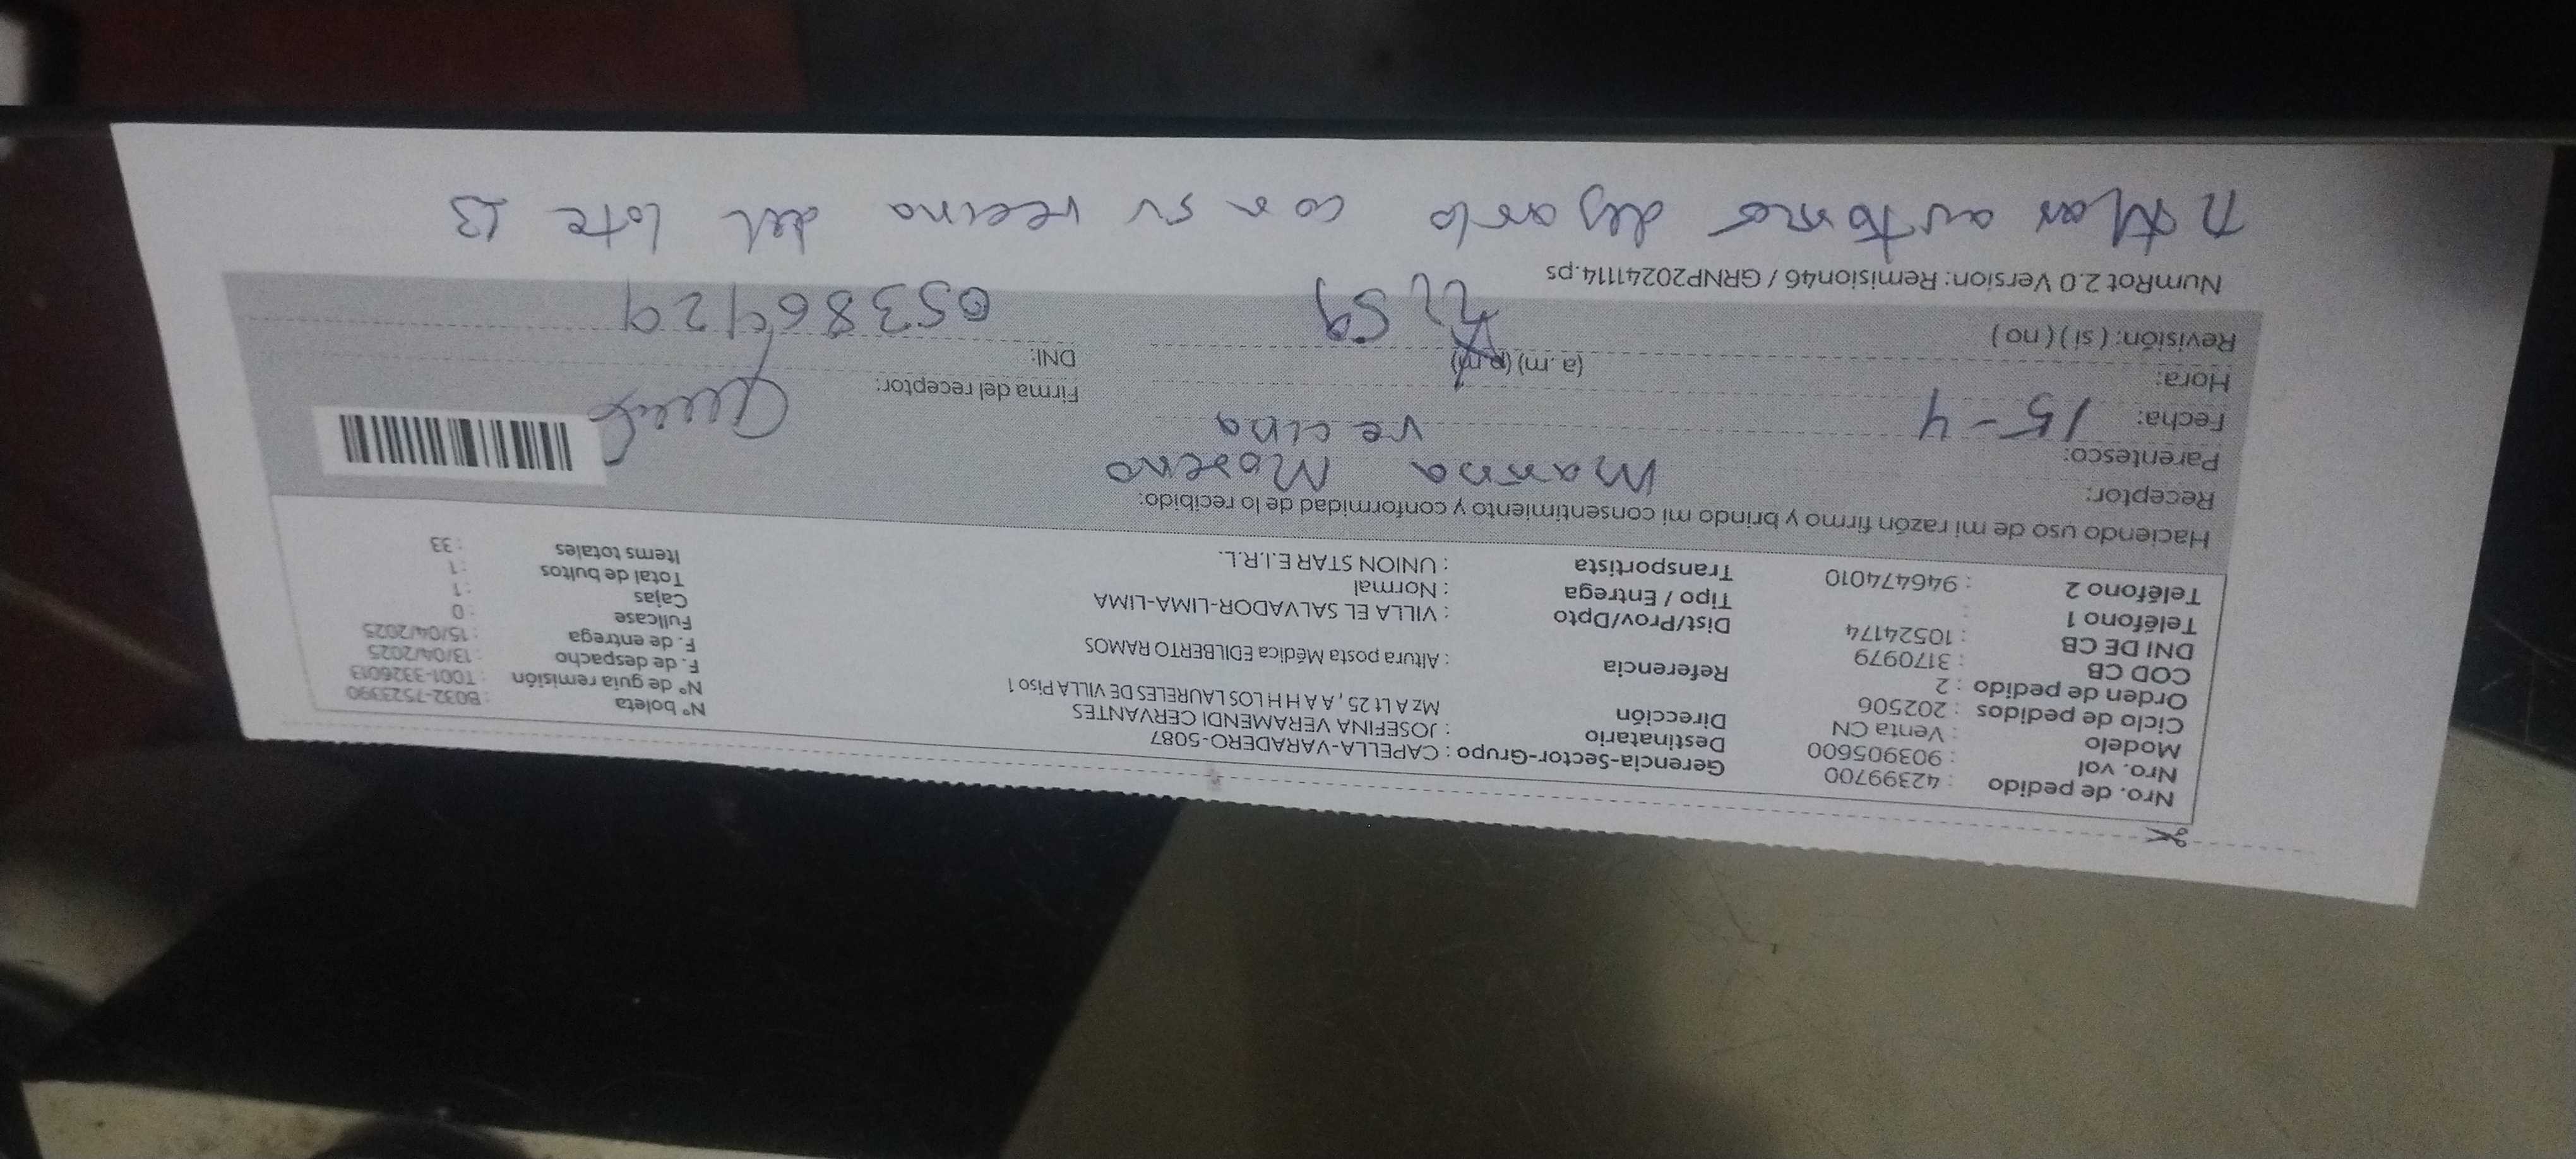 Nro. de pedido : 42399700
Nro. vol : 903905600
Modelo : Venta CN
Ciclo de pedidos : 202506
Orden de pedido : 2
COD CB : 3170979
DNI DE CB : 10524174
Teléfono 1 :
Teléfono 2 : 946474010
Gerencia-Sector-Grupo : CAPELLA-VARADERO-5087
Destinatario : JOSEFINA VERAMENDI CERVANTES
Dirección Mz A Lt 25 , A A H H LOS LAURELES DE VILLA Piso 1
Referencia : Altura posta Médica EDILBERTO RAMOS
Dist/Prov/Dpto : VILLA EL SALVADOR-LIMA-LIMA
Tipo / Entrega : Normal
Transportista : UNION STAR E.I.R.L.
N° boleta : B032-7523390
N° de guia remisión : T001-3326013
F. de despacho : 13/04/2025
F. de entrega : 15/04/2025
Fullcase : 0
Cajas : 1
Total de bultos : 1
Items totales : 33
Haciendo uso de mi razón firmo y brindo mi consentimiento y conformidad de lo recibido:
Receptor: Marina Moreno
Parentesco: vecina
Fecha: 15-4
Hora: (a. m) (p.m)
Revisión: ( si ) ( no )
Firma del receptor:
DNI:
NumRot 2.0 Version: Remision46 / GRNP20241114.ps
dejarlo con su vecina del lote 23